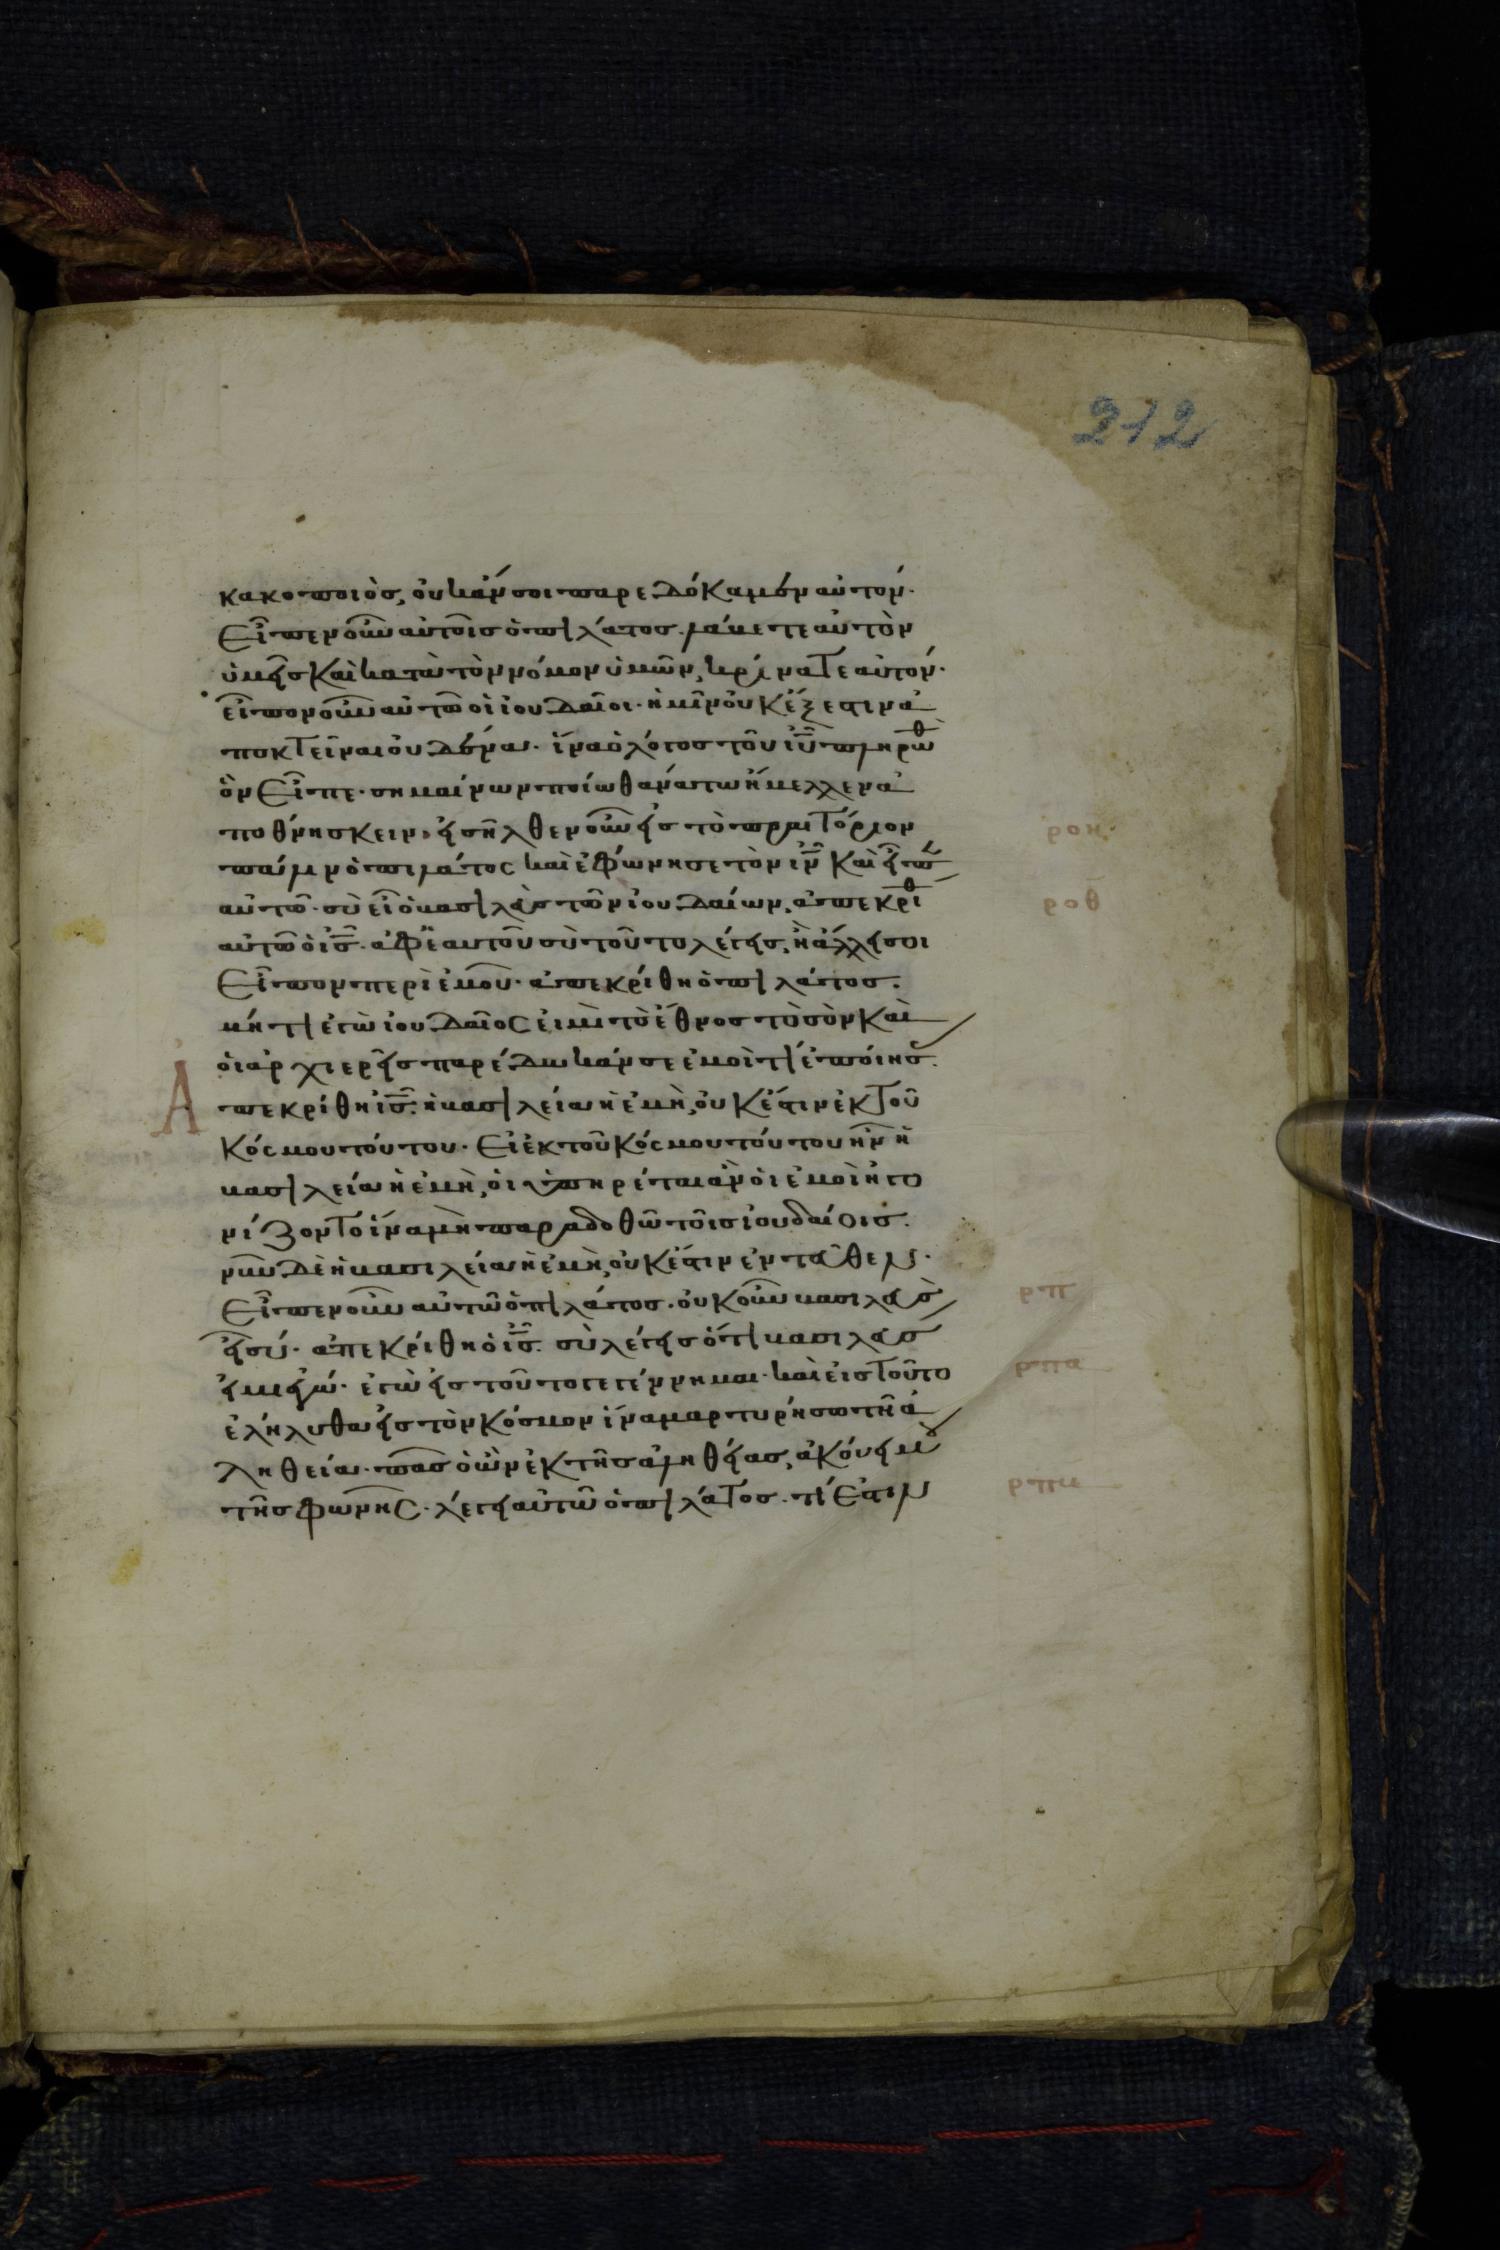 212
κακοποιὸς, οὐκ ἄν σοι παρεδόκαμεν αὐτόν·
Εἶπεν οὖν αὐτοῖς ὁ πιλάτος· λάβετε αὐτὸν
ὑμεῖς καὶ κατὰ τὸν νόμον ὑμῶν, κρίνατε αὐτόν·
εἶπον οὖν αὐτῶ οἱ ἰουδαῖοι· ἡμῖν οὐκ ἔξεστιν ἀ
ποκτεῖναι οὐδένα· ἵνα ὁ λόγος τοῦ ιῦ πληρωθ
ὃν Εἶπε· σημαίνων ποίω θανάτω ἤμελλεν ἀ
ποθνήσκειν· εἰσῆλθεν οὖν εἰς τὸ πραιτόριον
πάλιν ὁ πιλάτος καὶ ἐφώνησε τὸν ιν καὶ εἶπεν
αὐτῶ· σὺ εἶ ὁ βασιλεὺς τῶν ἰουδαίων, ἀπεκρίθ
αὐτῶ ὁ ις· ἀφ' ἑαυτοῦ σὺ τοῦτο λέγεις, ἢ ἄλλοι σοι
Εἶπον περὶ ἐμοῦ· ἀπεκρίθη ὁ πιλάτος·
μήτι ἐγὼ ἰουδαῖος εἰμὶ τὸ ἔθνος τὸ σὸν καὶ
οἱ ἀρχιερεῖς παρέδωκάν σε ἐμοὶ τί ἐποίησ·
Α πεκρίθη ις· ἡ βασιλεία ἡ ἐμὴ, οὐκ ἔστιν ἐκ τοῦ
κόσμου τούτου· Εἰ ἐκ τοῦ κόσμου τούτου ἦν ἡ
βασιλεία ἡ ἐμὴ, οἱ ὑπηρέται ἂν οἱ ἐμοὶ ἠγω
νίζοντο ἵνα μὴ παραδοθῶ τοῖς ἰουδαίοις·
νῦν δὲ ἡ βασιλεία ἡ ἐμὴ, οὐκ ἔστιν ἐνταῦθεν·
Εἶπεν οὖν αὐτῶ ὁ πιλάτος· οὐκοῦν βασιλεὺς
εἶ σύ· ἀπεκρίθη ὁ ις· σὺ λέγεις ὅτι βασιλεὺς
εἰμι ἐγώ· ἐγὼ εἰς τοῦτο γεγέννημαι· καὶ εἰς τοῦτο
ἐλήλυθα εἰς τὸν κόσμον ἵνα μαρτυρήσω τῆ ἀ
ληθεία· πᾶς ὁ ὢν ἐκ τῆς ἀληθείας, ἀκούει μου
τῆς φωνῆς· λέγει αὐτῶ ὁ πιλάτος· τί Εστιν